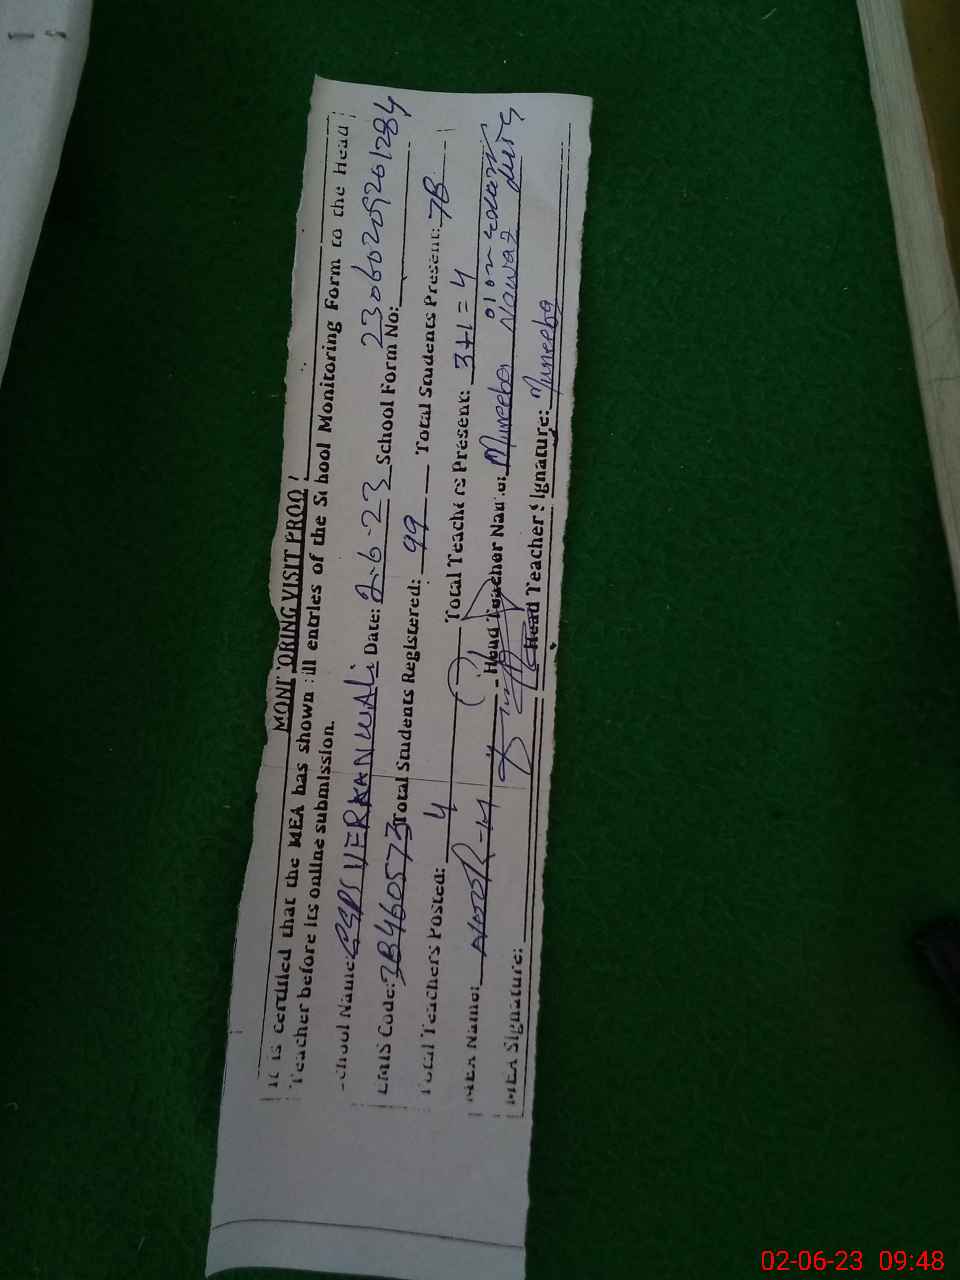 MONITORING VISIT PROOF
It is certified that the MEA has shown all entries of the School Monitoring Form to the Head
Teacher before its online submission.
School Name: GGPS VERKANWALI Date: 2-6-23 School Form No: 23060209261284
EMIS Code: Total Students Registered: 99 Total Students Present: 78
Total Teachers Posted: 4 Total Teachers Present: 3+1=4
MEA Name: Head Teacher Name: Muneeba Nawaz
MEA Signature: Head Teacher Signature: Muneeba
02-06-23 09:48